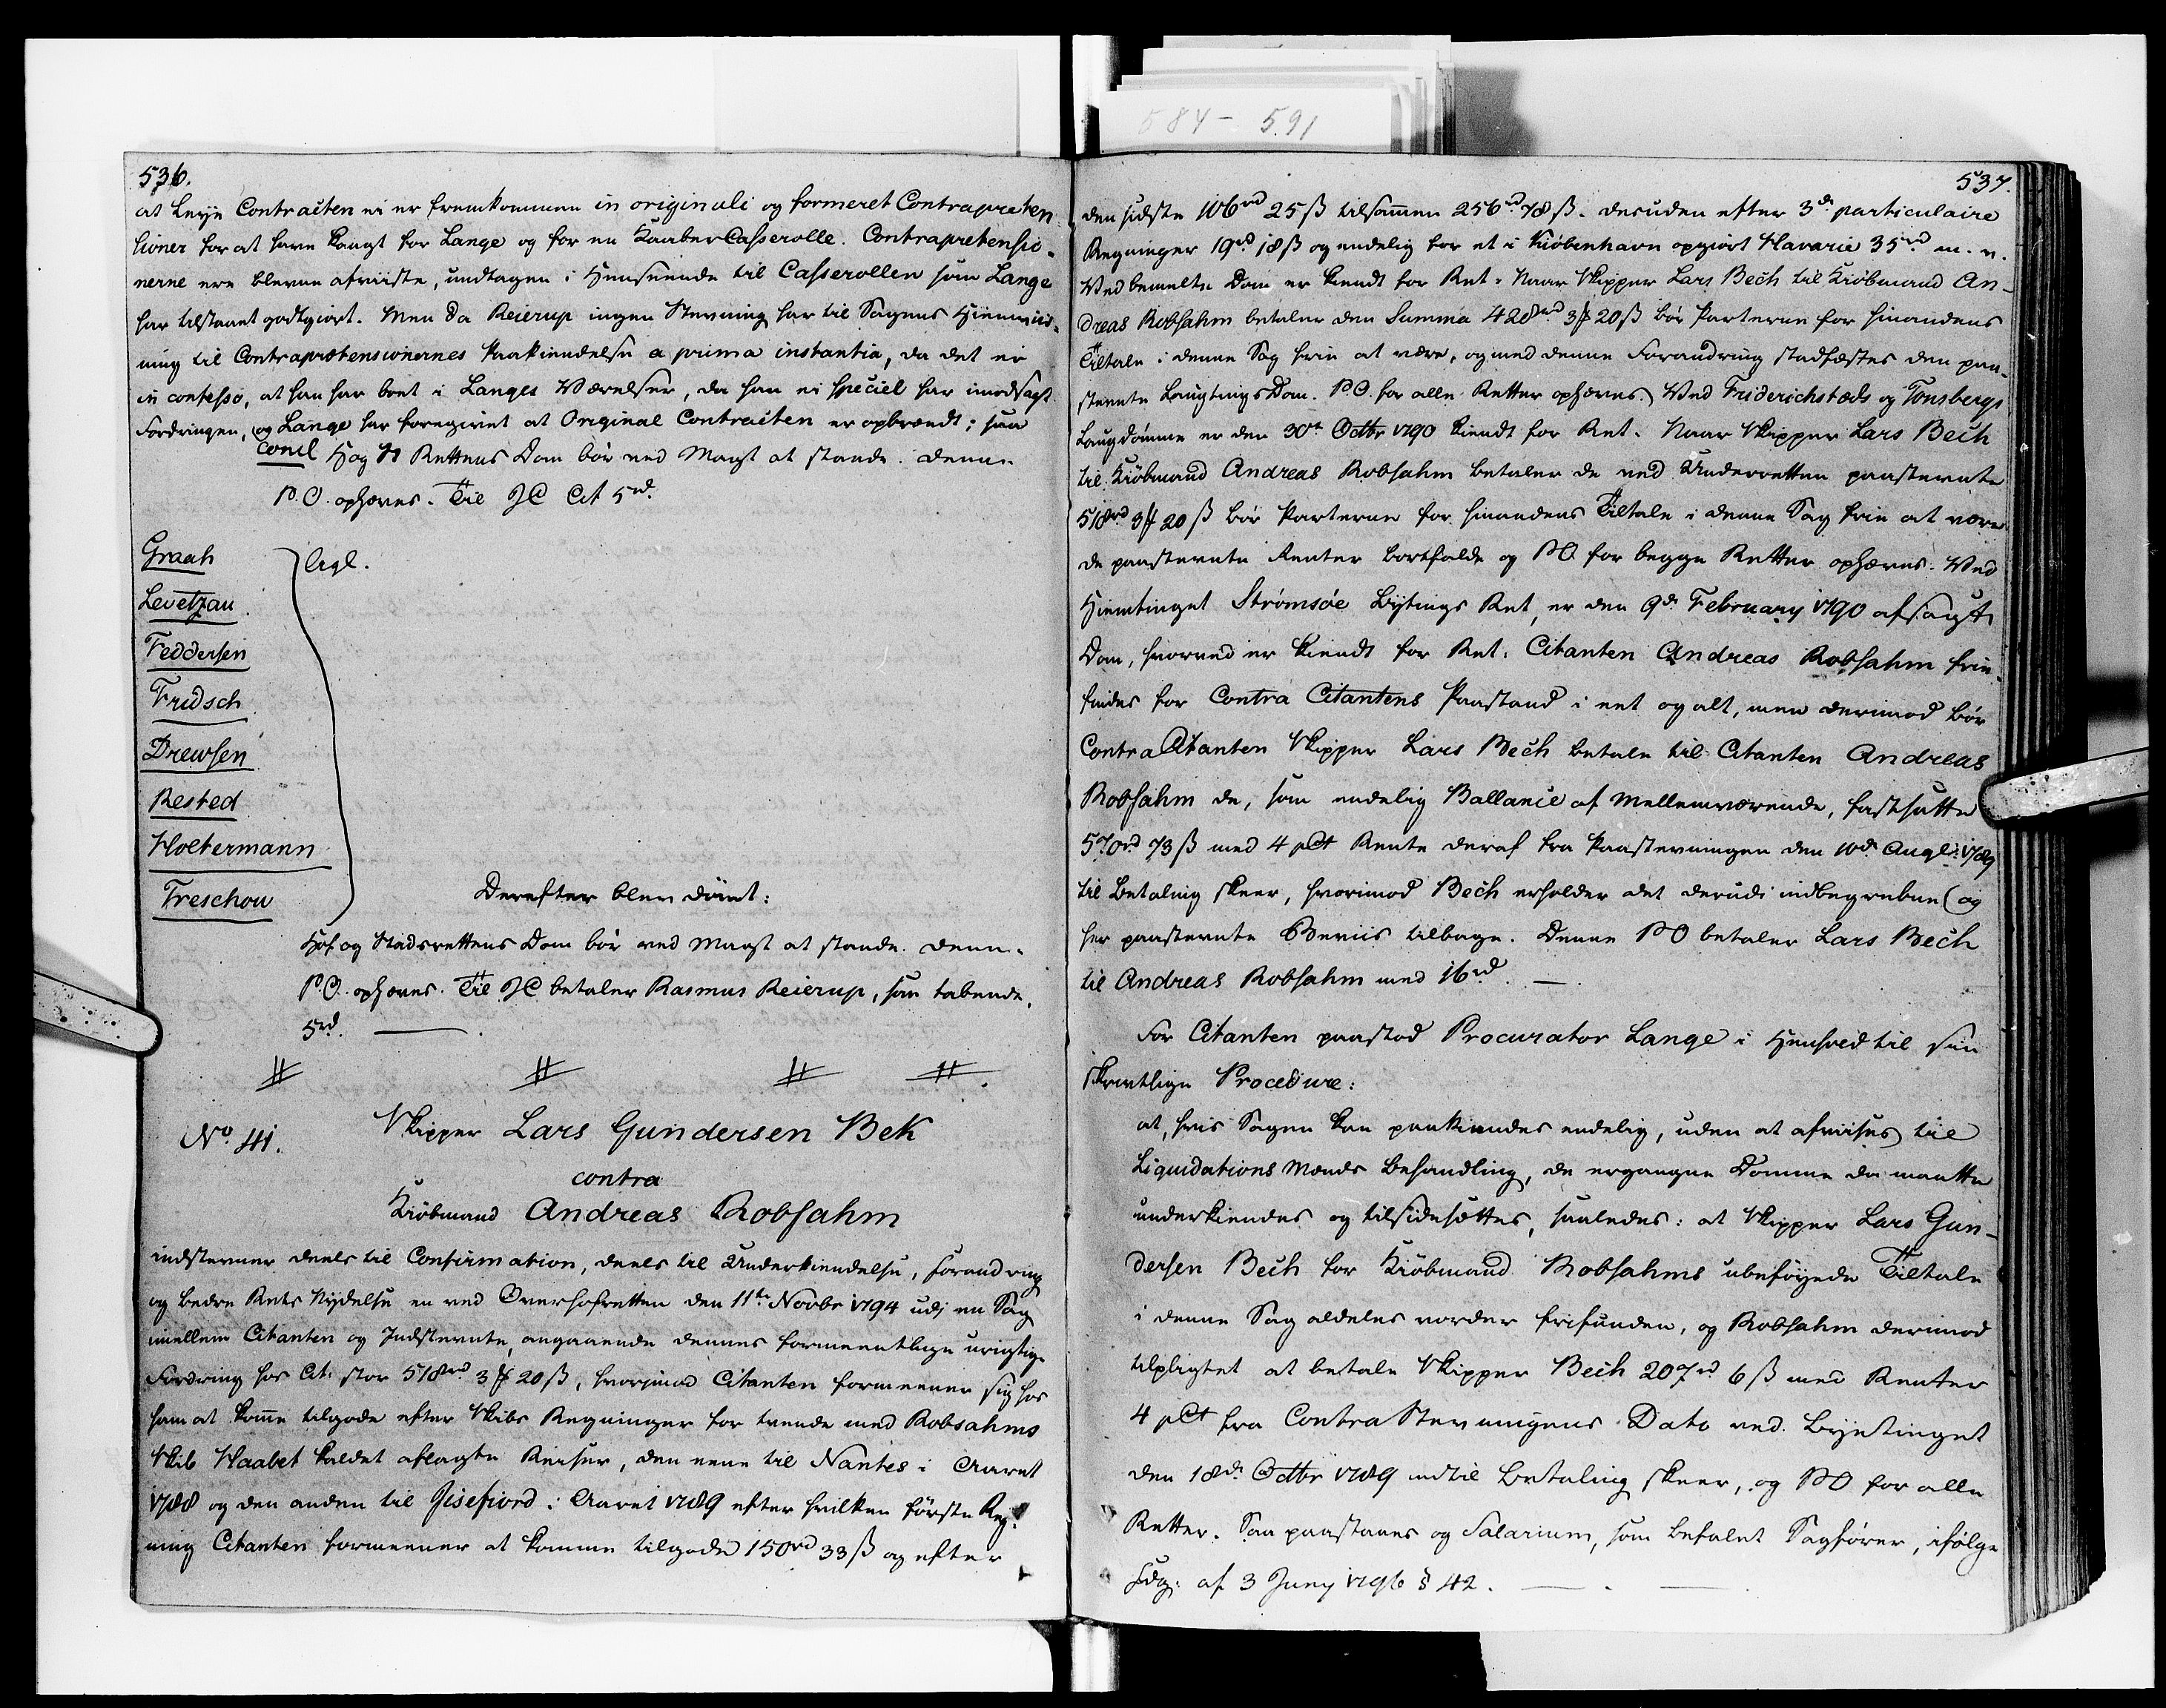 584 - 591
536.
at Leije Contracten ei er fremkommen in originali og formeret Contrapreten
sioner for at have kaagt for Lange og for en Kaaber Casserolle. Contrapretensio-
nerne ere blevne afviiste, undtagen i Henseende til Casserollen som Lange
har tilstaaet godtgiort. Men da Reierup ingen Stevning har til Sagens Hiemviis-
ning til Contraprætensionernes Paakiendelse a prima instantia, da det er
in confesso, at han har boet i Langes Værelser, da han ei speciel har imodsagt
Fordringen, og Lange har foregivet at Original Contracten er opbrændt; saa
concl H og St Rettens Dom bør ved Magt at stande. Denne
P.O. ophæves. Til JC Cit 5rd.
Graah
Levetzau
Feddersen
Fridsch
Drewsen
Rested
Holtermann
Treschow
ligl.
Derefter blev dömt:
Hof og Stadsrettens Dom bør ved Magt at stande. Denne
P.O. ophæves. Til JC betaler Rasmus Reierup, som tabende,
5rd.
No 41.
Skipper Lars Gundersen Bek
contra
Kiöbmand Andreas Robsahm
indstevner deels til Confirmation, deels til Underkiendelse, Forandring
og bedre Rets Nydelse en ved Overhofretten den 11te Novbr 1794 udi en Sag
imellem Citanten og Indstevnte, angaaende dennes formeentlige urigtige
Fordring hos Cit: stor 518rd 3 ℔ 20 ß, hvorimod Citanten formeener sig hos
ham at komme tilgode efter Skibs Regninger for tvende med Robsahms
Skib Haabet kaldet aflagte Reiser, den eene til Nantes i Aaret
1788 og den anden til Jisefiord i Aaret 1789 efter hvilken første Reg-
ning Citanten formeener at komme tilgode 150rd 33 ß og efter
537.
den sidste 106rd 25 ß tilsammen 256rd 78 ß. desuden efter 3de particulaire
Regninger 19rd 18 ß og endelig for et i Kiøbenhavn opgiort Havarie 35rd m. v.
Ved bemelte Dom er kiendt for Ret: Naar Skipper Lars Bech til Kiöbmand An-
dreas Robsahm betaler den Summa 428rd 3 ℔ 20 ß bör Parterne for hinandens
Tiltale i denne Sag frie at være, og med denne Forandring stadfæstes den paa-
stevnte Laugtings Dom. P.O. for alle Retter ophæves. Ved Friderichstads og Tonsbergs
Laugdömme er den 30te Octbr 1790 kiendt for Ret. Naar Skipper Lars Bech
til Kiöbmand Andreas Robsahm betaler de ved Underretten paastevnte
518rd 3 ℔ 20 ß bör Parterne for hinandens Tiltale i denne Sag frie at være
de paastevnte Renter bortfalde og P.O. for begge Retter ophæves. Ved
Hiemtinget Strømsöe Bytings Ret, er den 9de February 1790 afsagt
Dom, hvorved er kiendt for Ret: Citanten Andreas Robsahm frie-
findes for Contra Citantens Paastand i eet og alt, men derimod bör
Contra Citanten Skipper Lars Bech betale til Citanten Andreas
Robsahm de, som endelig Ballance af Mellemværende, fastsatte
570rd 73 ß med 4 pCt Rente deraf fra Paastevningen den 10de Aug: 1789
til Betaling skeer, hvorimod Bech erholder det derudi indbegrebne og
her paastevnte Beviis tilbage. Denne P O betaler Lars Bech
til Andreas Robsahm med 16rd. —
For Citanten paastod Procurator Lange i Henhold til sin
skrivtlige Procedure:
at, hvis Sagen kan paakiendes endelig, uden at afviises til
Liquidations Mænds Behandling, de ergangne Domme da maatte
underkiendes og tilsidesættes, saaledes: at Skipper Lars Gun-
dersen Bech for Kiöbmand Robsahms ubeföyede Tiltale
i denne Sag aldeles vorder frifunden, og Robsahm derimod
tilpligtet at betale Skipper Bech 207rd 6 ß med Renter
4 pCt fra Contra Stevningens Dato ved Byetinget
den 18de Octbr 1789 indtil Betaling skeer, og P O for alle
Retter. Saa paastaaes og Salarium, som befalet Sagfører, ifølge
Fdg: af 3 Juny 1796 § 42.